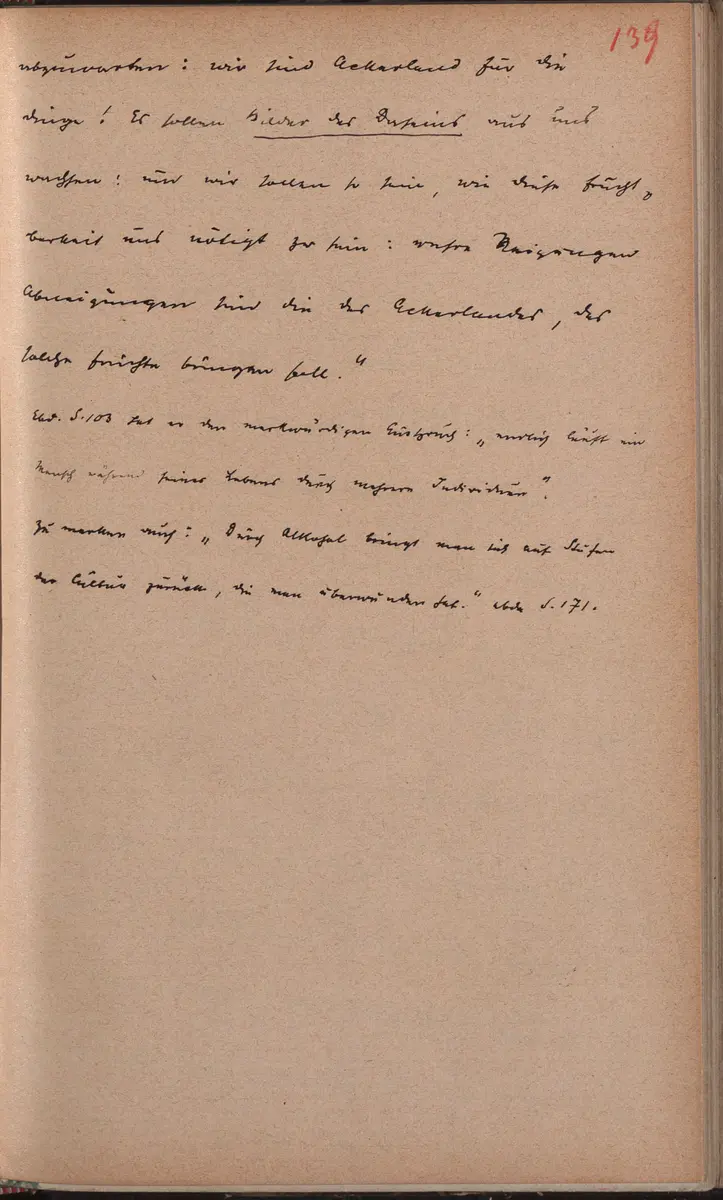 139
abzuwarten: wir sind Ackerland für die
Dinge! Es sollen Bilder des Daseins aus uns
wachsen: und wir sollen so sein, wie diese Frucht„
barkeit uns nötigt zu sein: unsre Neigungen
Abneigungen sind die des Ackerlandes, das
solche Früchte bringen soll.“
Ebd. S. 103 hat er den merkwürdigen Ausspruch: „endlich läuft ein
Mensch während seines Lebens durch mehrere Individuen“.
Zu merken auch: „Durch Alkohol bringt man sich auf Stufen
der Cultur zurück, die man überwunden hat.“ ebda S. 171.